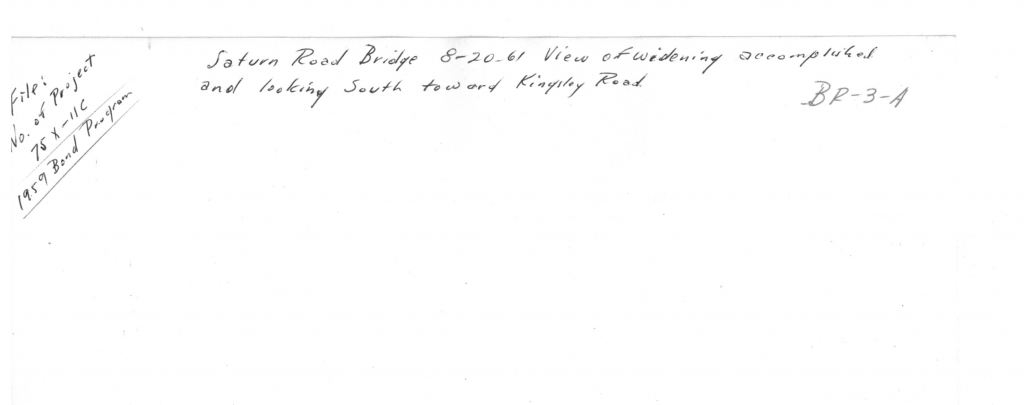 File:
No. of Project
75 X-11C
1959 Bond Program
Saturn Road Bridge 8-20-61 View of widening accomplished
and looking South toward Kingsley Road.
BR-3-A